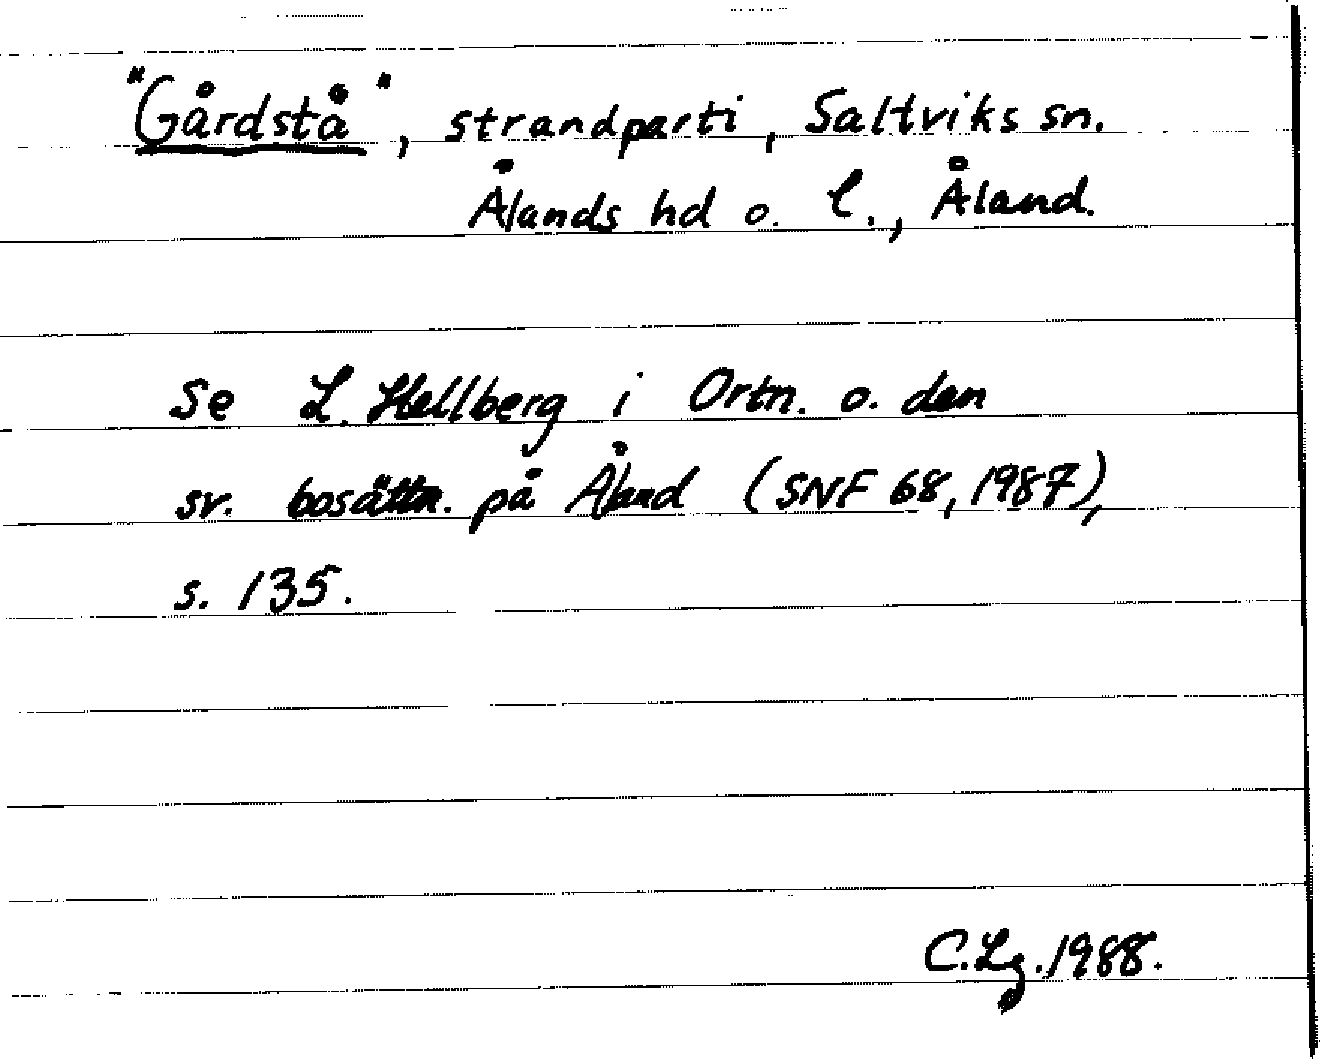 "Gårdstå", strandparti, Saltviks sn.
Ålands hd o. l., Åland.
Se L. Hellberg i Ortn. o. den
sv. bosättn. på Åland (SNF 68, 1987),
s. 135.
C. Lg. 1988.